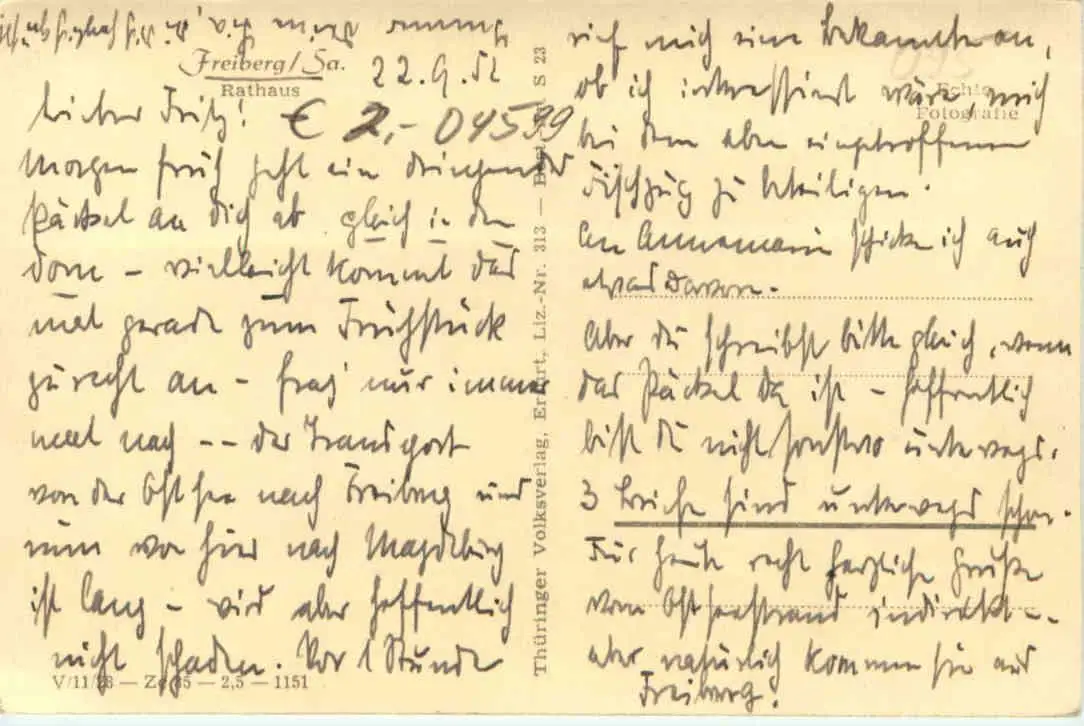 Freiberg/Sa.
Rathaus
22.9.52
€ 2,- 04599
Lieber Fritz!
Morgen früh geht ein dringendes
Päckel an Dich ab gleich in den
Dom – vielleicht kommt das
mal gerade zum Frühstück
zurecht an – frag' nur immer
mal nach -- der Transport
von der Ostsee nach Freiberg und
nun von hier nach Magdeburg
ist lang – wird aber hoffentlich
nicht schaden. Vor 1 Stunde
V/11/28 — Ze 35 — 2,5 — 1151
Thüringer Volksverlag, Erfurt, Liz.-Nr. 313 — S 23
rief mich eine Bekannte an,
ob ich interessiert wäre, mich
Echte
Fotografie
bei dem eben eingetroffenen
Fischzug zu beteiligen.
An Annemarie schicke ich auch
etwas davon.
Aber Du schreibst bitte gleich, wenn
das Päckel da ist – hoffentlich
bist Du nicht sonstwo unterwegs.
3 Briefe sind unterwegs schon.
Für heute recht herzliche Grüße
vom Ostseestrand indirekt --
aber natürlich kommen sie aus
Freiberg!